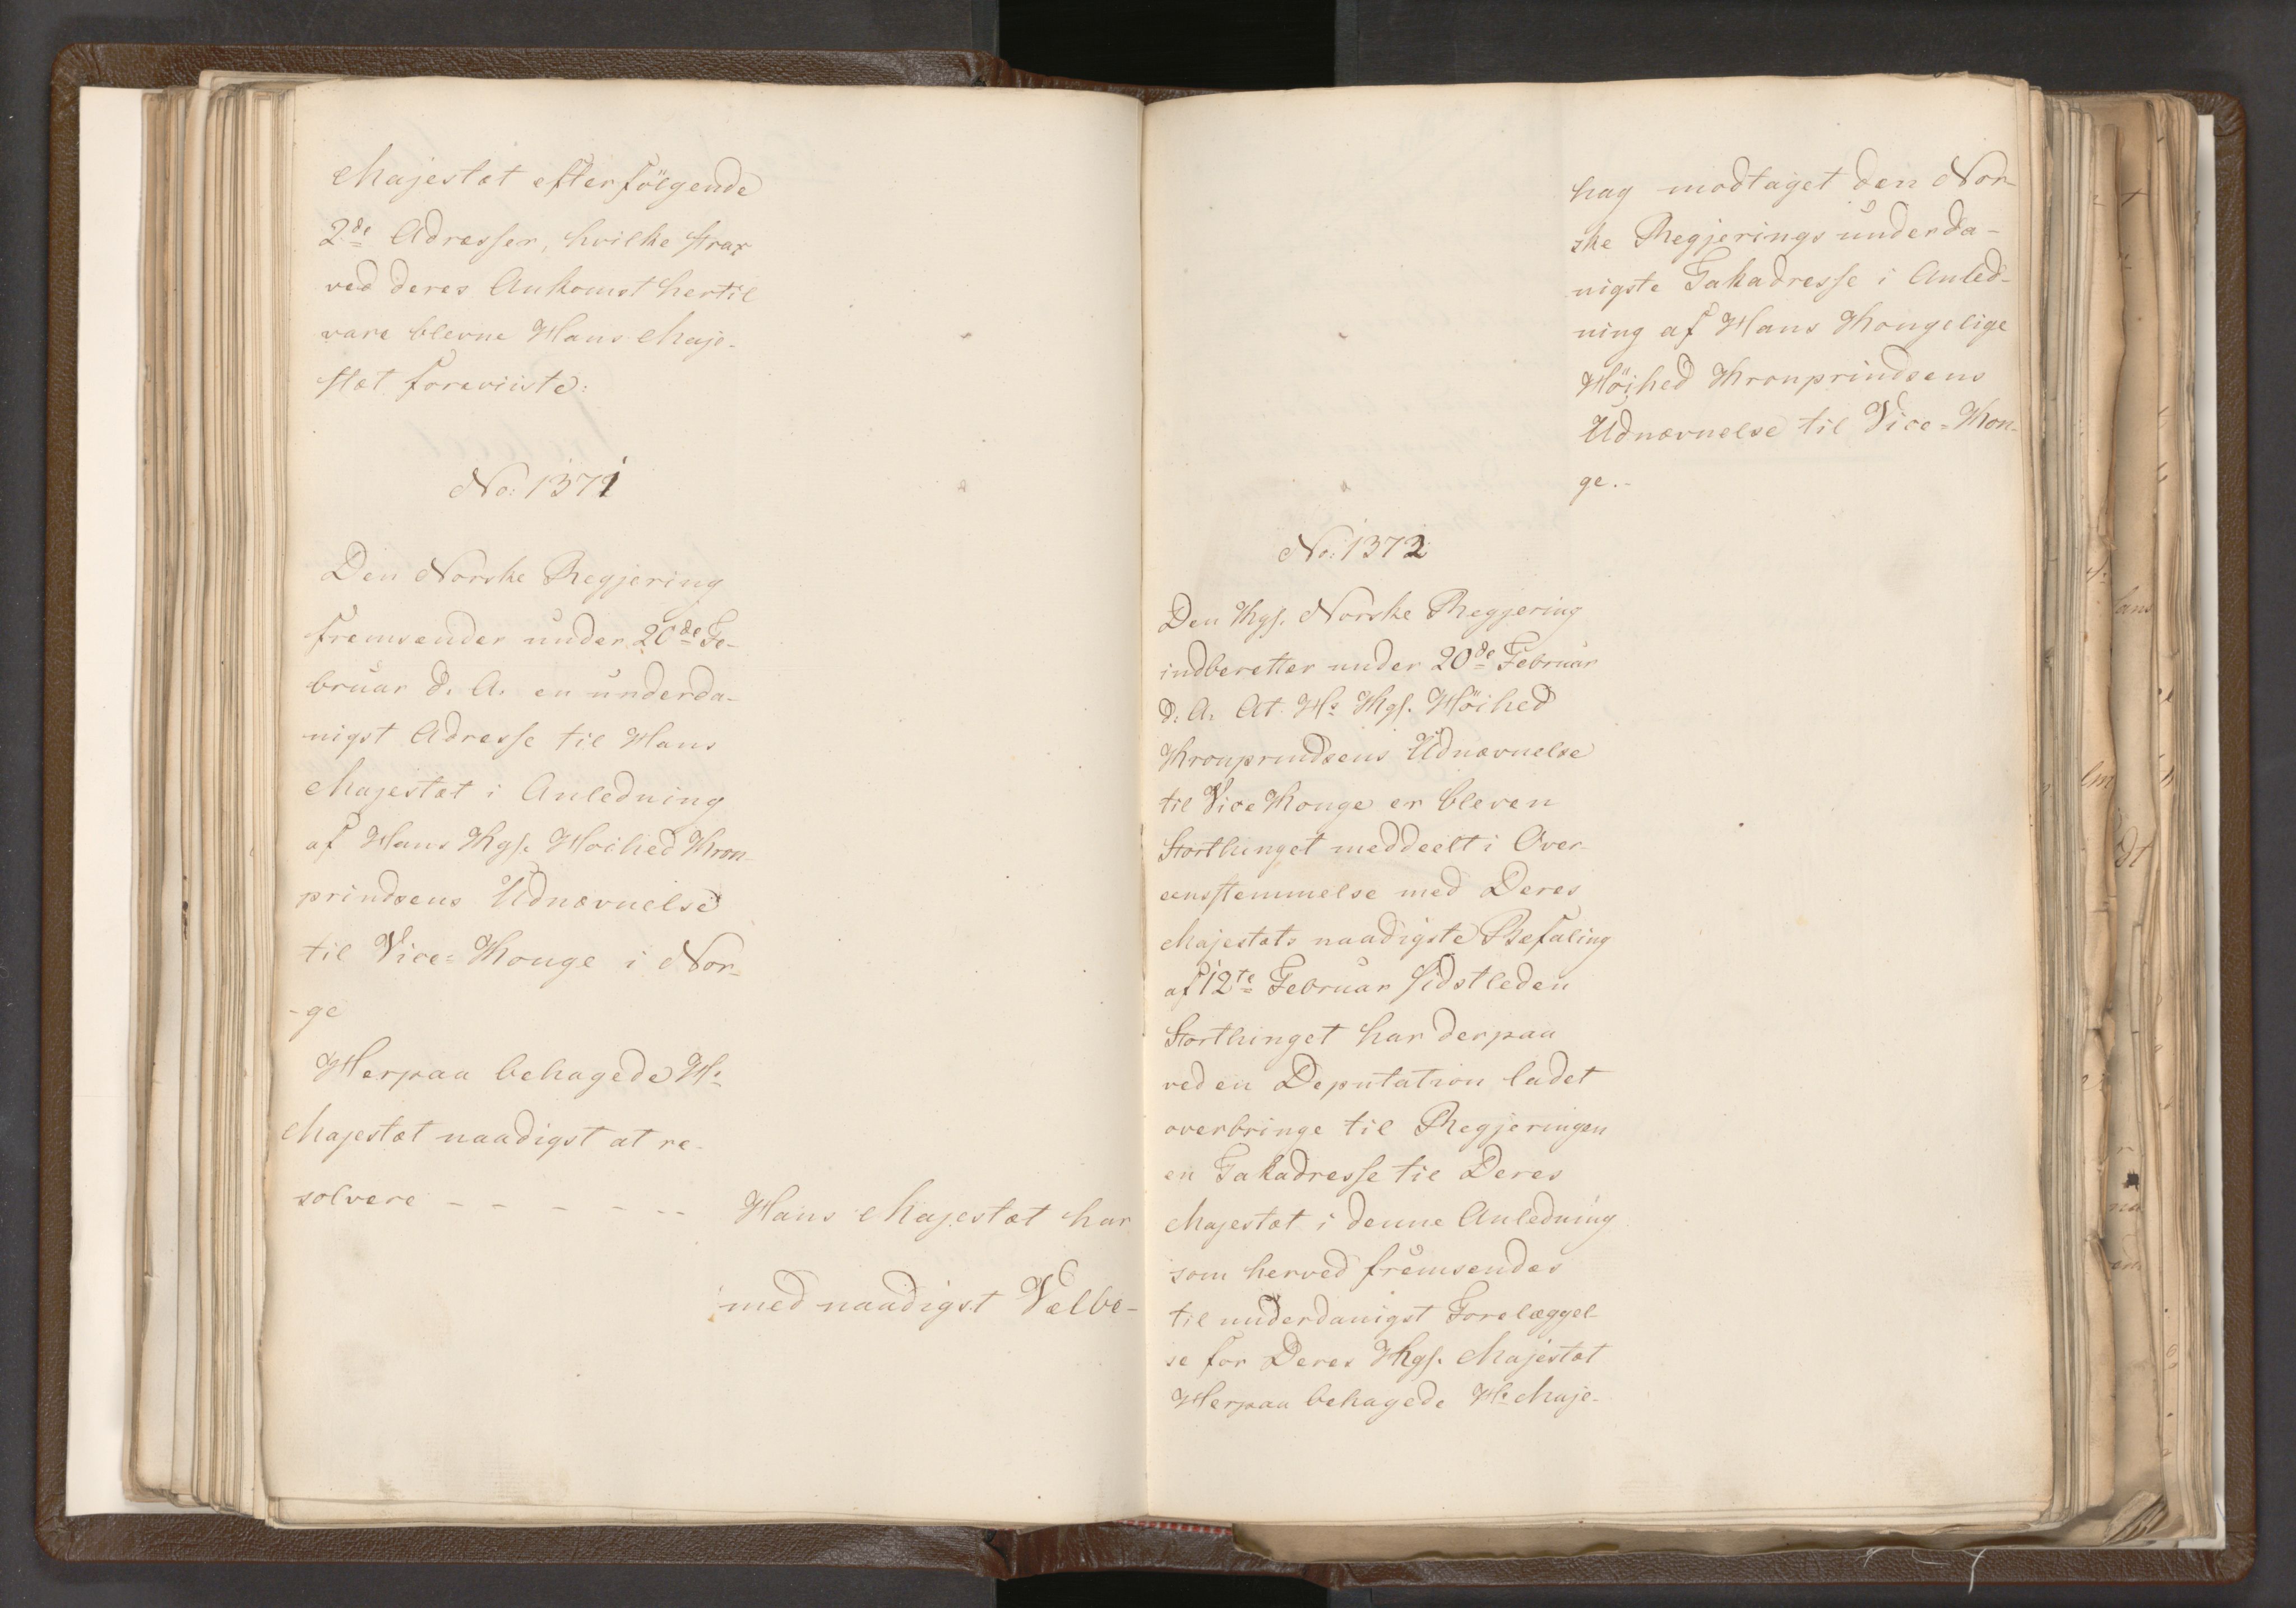 Majestæt efterfölgende
2de Adresser, hvilke strax
ved deres Ankomst hertil
vare blevne Hans Maje-
stæt foreviiste:
No: 1371
Den Norske Regjering
fremsender under 20de Fe-
bruar d. A. en underda-
nigst Adresse til Hans
Majestæt i Anledning
af Hans Kgl. Höihed Kron-
prindsens Udnævnelse
til Vice-Konge i Nor-
-ge
Herpaa behagede Hs
Majestæt naadigst at re-
solvere - - - - - -
Hans Majestæt har
med naadigst Velbe-
hag modtaget den Nor-
ske Regjerings underda-
nigste Takadresse i Anled-
ning af Hans Kongelige
Höihed Kronprindsens
Udnævnelse til Vice-Kon-
ge.-
No: 1372
Den Kgl. Norske Regjering
indberetter under 20de Februar
d. A. At Hs Kgl. Höihed
Kronprindsens Udnævnelse
til Vice Konge er bleven
Storthinget meddeelt i Over-
eensstemmelse med Deres
Majestæts naadigste Befaling
af 12te Februar sidstleden
Storthinget har derpaa
ved en Deputation ladet
overbringe til Regjeringen
en Takadresse til Deres
Majestæt i denne Anledning
som herved fremsendes
til underdanigst Forelæggel-
se for Deres Kgl. Majestæt
Herpaa behagede Hs Maje-